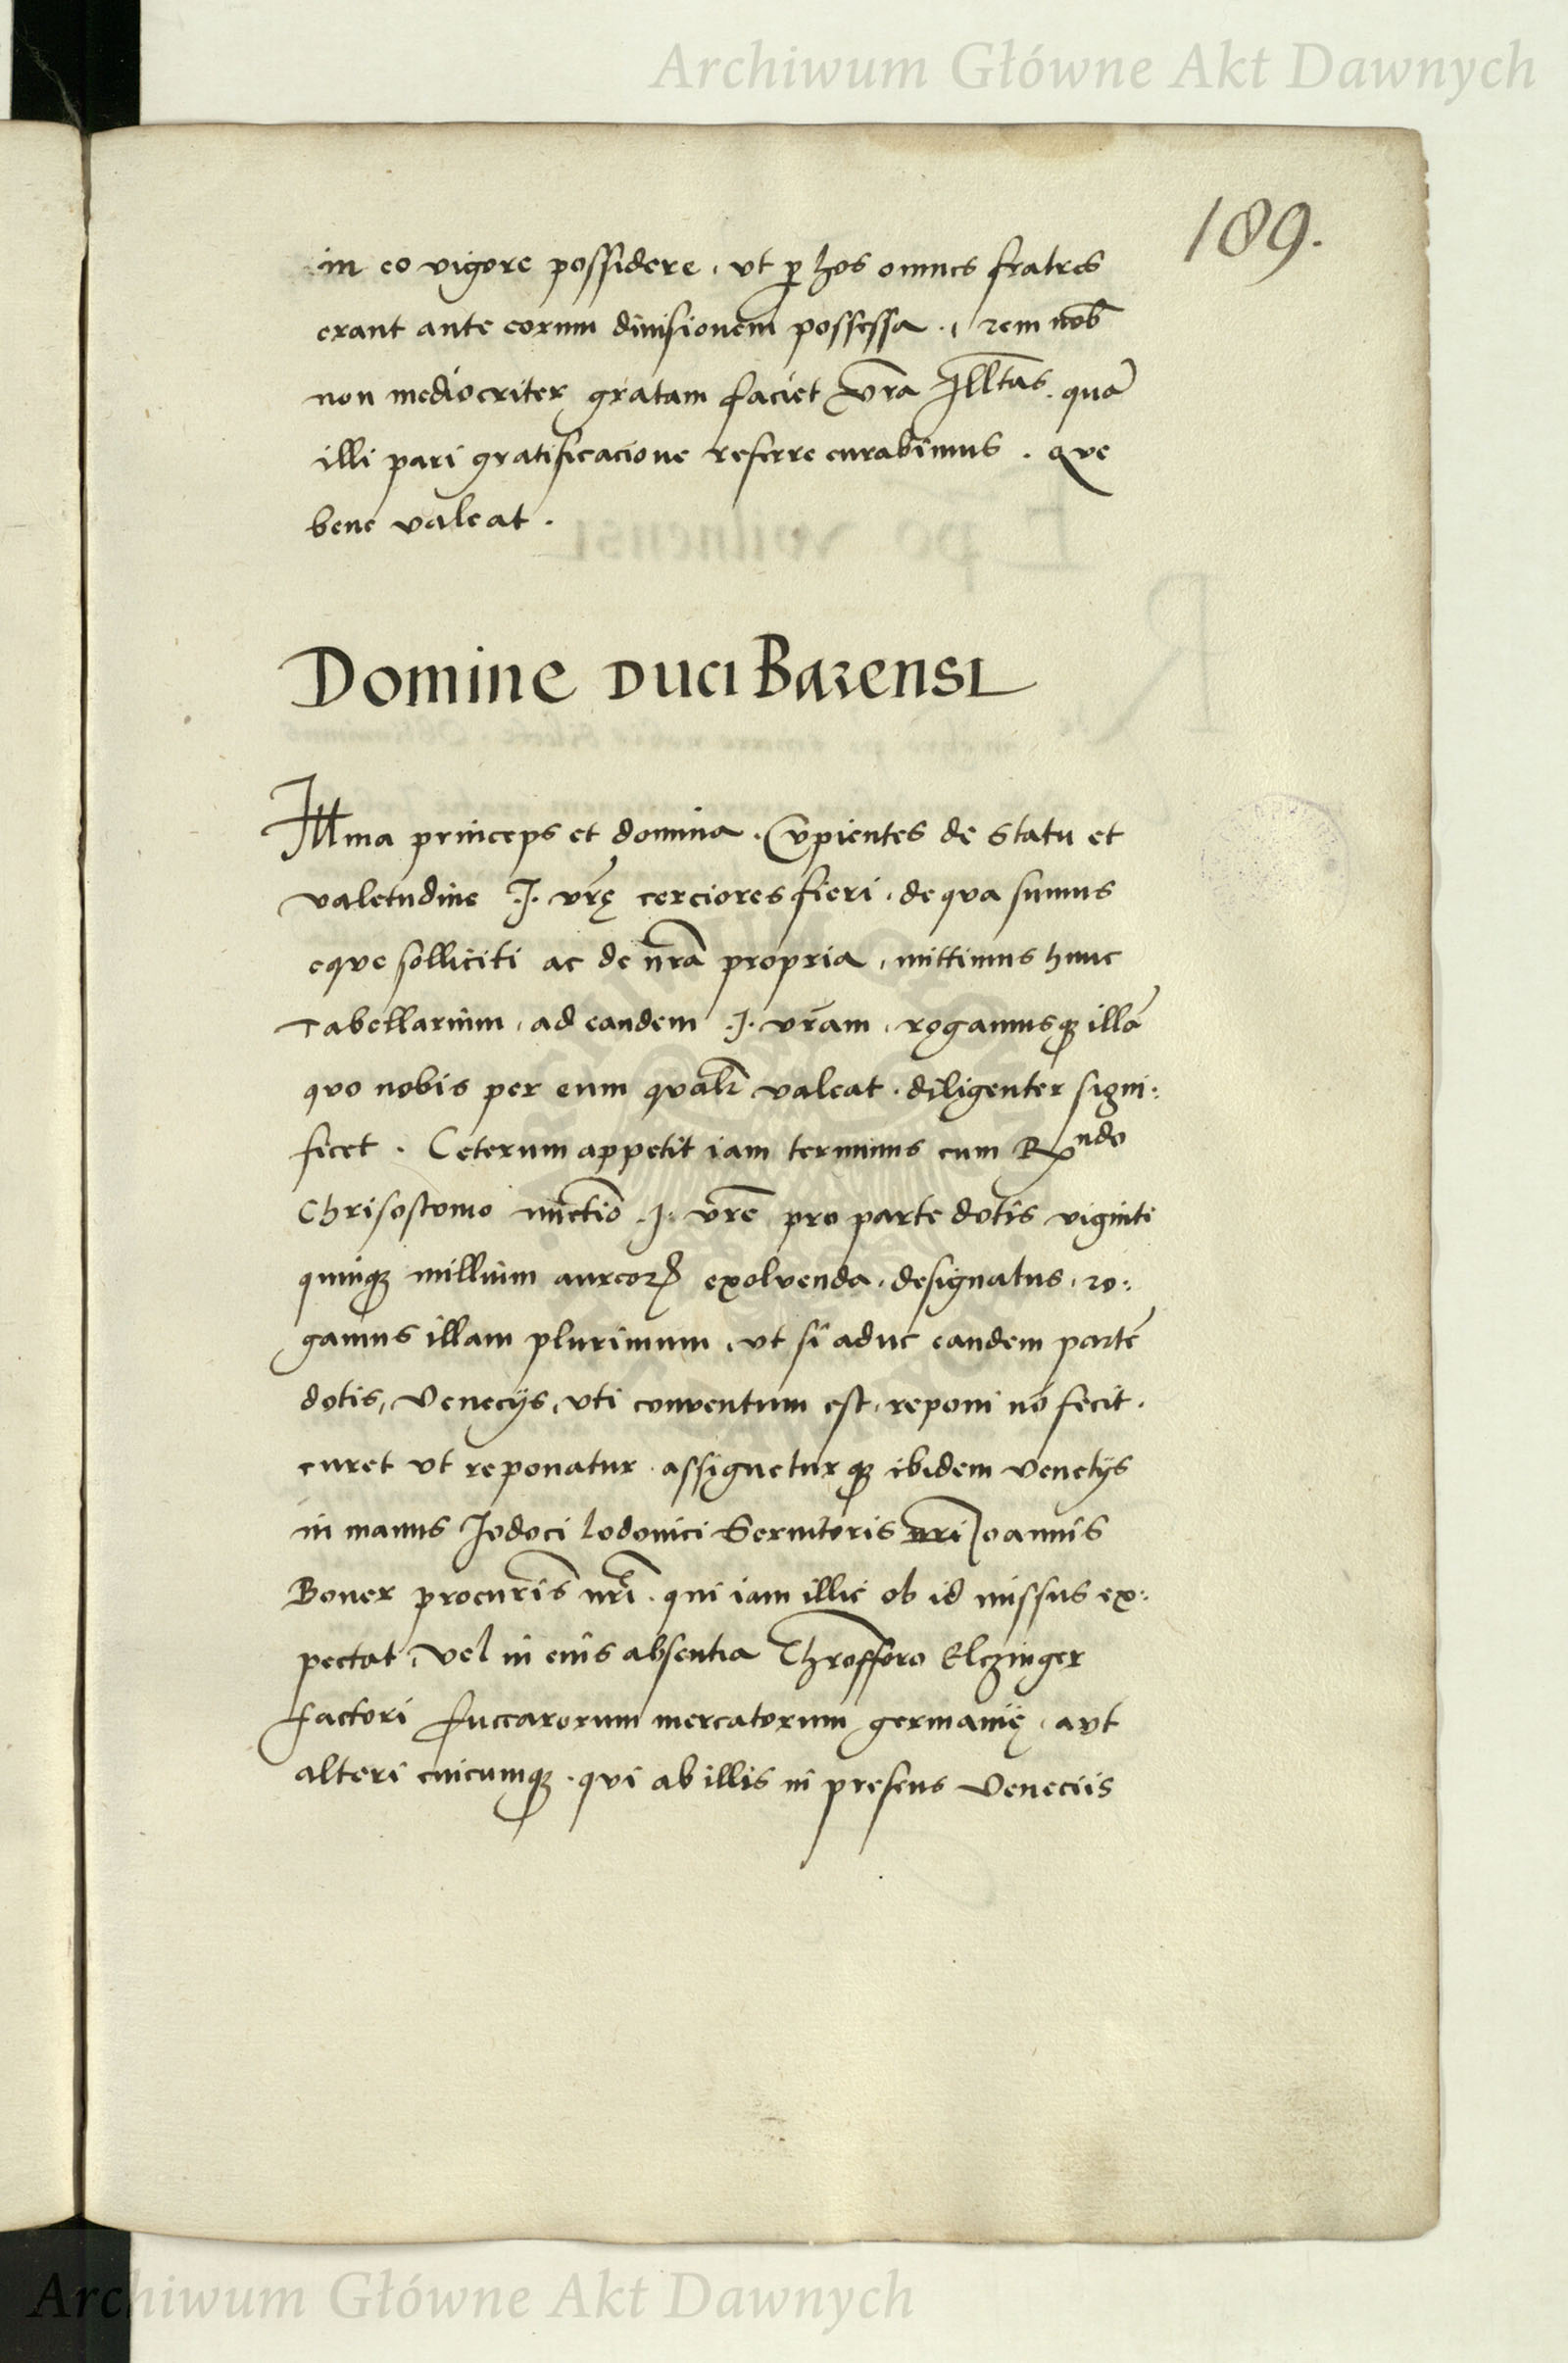 Archiwum Główne Akt Dawnych
189.
in eo vigore possidere, ut p hos omnes fratres
erant ante eorum divisionem possessa., rem nob
non mediocriter gratam faciet vra Illtas. quā
illi pari gratificacione referre curabimus. que
bene valeat.
Domine Duci Barensi
Illma princeps et domina. Cupientes de statu et
valetudine .I. vrę cerciores fieri, de qua sumus
eque solliciti ac de nra propria, mittimus hunc
Tabellarium, ad eandem .I. vram, rogamusq illā
quo nobis per eum qualr valeat. diligenter signi:
ficet. Ceterum appetit iam terminus cum Rndo
Chrisostomo nunctio .I. vre pro parte dotis viginti
quinq millium aureor exolvenda, designatus, ro:
gamus illam plurimum, ut si aduc eandem partē
dotis, Venecijs, uti conventum est, reponi nō fecit.
curet ut reponatur. assigneturq ibidem Venetijs
in manus Jodoci lodovici Servitoris nri Joannis
Boner procuris nri. qui iam illic ob id missus ex:
pectat, vel in eius absentia Chrofforo Elczinger
factori fuccarorum mercatorum germanię, aut
alteri cuicumq. qui ab illis in presens Veneciis
Archiwum Główne Akt Dawnych